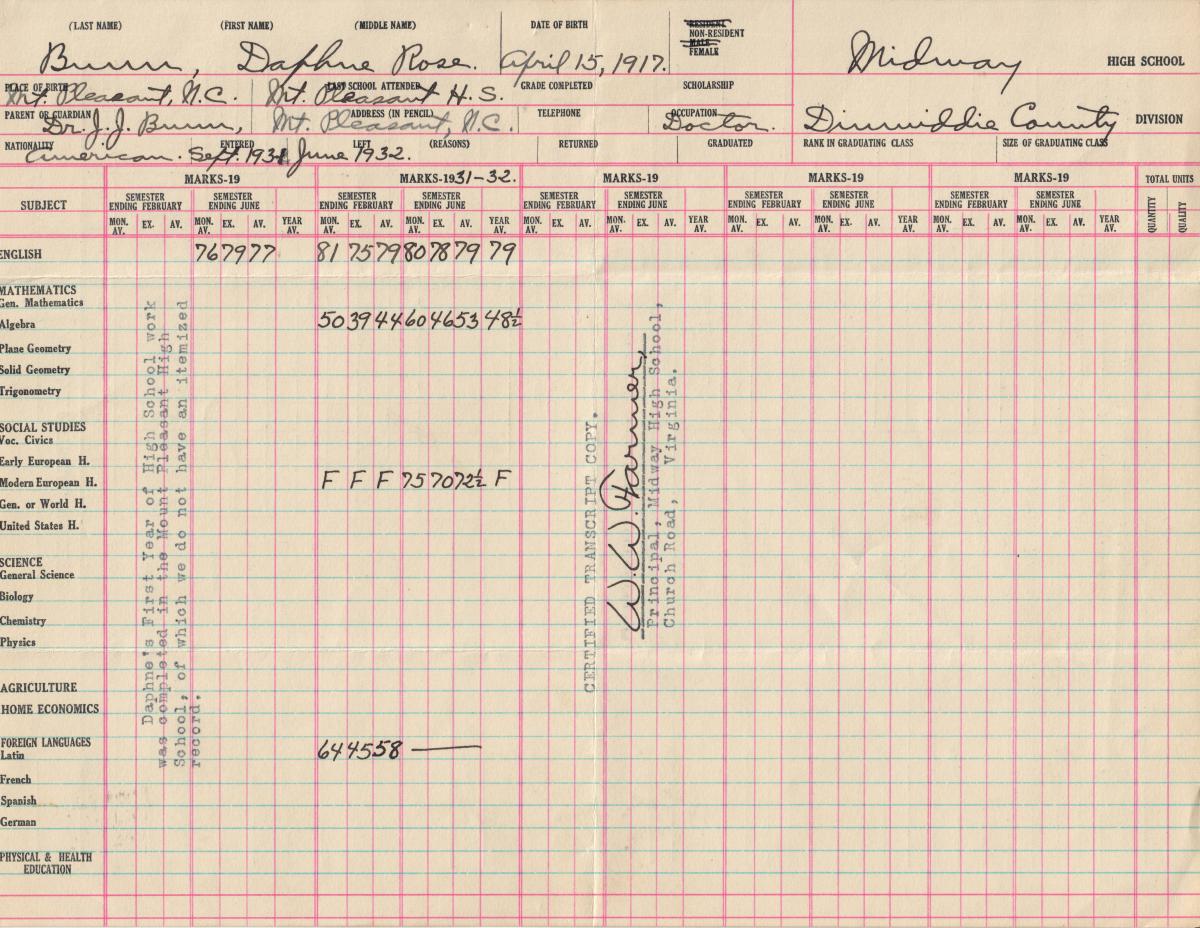 (LAST NAME) (FIRST NAME) (MIDDLE NAME) DATE OF BIRTH RESIDENT
NON-RESIDENT
MALE
FEMALE
Bunn, Daphne Rose. April 15, 1917. Midway HIGH SCHOOL
PLACE OF BIRTH LAST SCHOOL ATTENDED GRADE COMPLETED SCHOLARSHIP
Mt. Pleasant, N.C. Mt. Pleasant H.S.
PARENT OR GUARDIAN ADDRESS (IN PENCIL) TELEPHONE OCCUPATION
Dr. J. J. Bunn, Mt. Pleasant, N.C. Doctor. Dinwiddie County DIVISION
NATIONALITY ENTERED LEFT (REASONS) RETURNED GRADUATED RANK IN GRADUATING CLASS SIZE OF GRADUATING CLASS
American. Sept. 1931 June 1932.
MARKS-19 MARKS-1931-32. MARKS-19 MARKS-19 MARKS-19 TOTAL UNITS
SUBJECT SEMESTER ENDING FEBRUARY SEMESTER ENDING JUNE SEMESTER ENDING FEBRUARY SEMESTER ENDING JUNE SEMESTER ENDING FEBRUARY SEMESTER ENDING JUNE SEMESTER ENDING FEBRUARY SEMESTER ENDING JUNE SEMESTER ENDING FEBRUARY SEMESTER ENDING JUNE QUANTITY QUALITY
MON. AV. EX. AV. MON. AV. EX. AV. YEAR AV. MON. AV. EX. AV. MON. AV. EX. AV. YEAR AV. MON. AV. EX. AV. MON. AV. EX. AV. YEAR AV. MON. AV. EX. AV. MON. AV. EX. AV. YEAR AV. MON. AV. EX. AV. MON. AV. EX. AV. YEAR AV.
ENGLISH 76 79 77 81 75 79 80 78 79 79
MATHEMATICS
Gen. Mathematics
Algebra 50 39 44 60 46 53 48½
Plane Geometry
Solid Geometry
Trigonometry
SOCIAL STUDIES
Voc. Civics
Early European H.
Modern European H. F F F 75 70 72½ F
Gen. or World H.
United States H.
SCIENCE
General Science
Biology
Chemistry
Physics
AGRICULTURE
HOME ECONOMICS
FOREIGN LANGUAGES
Latin 64 45 58 —
French
Spanish
German
PHYSICAL & HEALTH
EDUCATION
Daphne's First Year of High School work
was completed in the Mount Pleasant High
School, of which we do not have an itemized
record.
CERTIFIED TRANSCRIPT COPY.
W. W. Farmer,
Principal, Midway High School,
Church Road, Virginia.